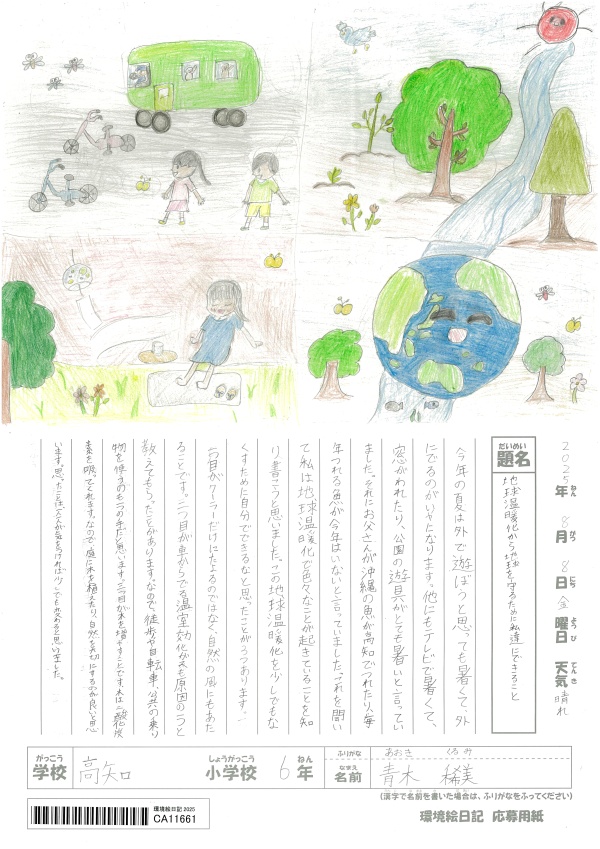 2025年 8月 8日 金曜日 天気 晴れ
ねん がつ にち ようび てんき
だいめい
題名
地球温暖化から地球を守るために私達にできること
今年の夏は外で遊ぼうと思っても暑くて、外
にでるのがいやになります。他にもテレビで暑くて、
窓がわれたり、公園の遊具がとても暑いと言ってい
ました。それにお父さんが沖縄の魚が高知でつれたり、毎
年つれる魚が今年はいないと言っていました。それを聞い
て私は地球温暖化で色々なことが起きていることを知
り書こうと思いました。この地球温暖化を少しでもな
くすために自分でできるなと思ったことが3つあります。
一つ目がクーラーだけにたよるのではなく、自然の風にもあた
ることです。二つ目が車からでる温室効化ガスも原因の一つと
教えてもらったことがあります。なので、徒歩や自転車、公共の乗り
物を使うのも一つの手だと思います。三つ目が木を増やすことです。木は二酸化炭
素を吸ってくれます。なので、庭に木を植えたり、自然を大切にするのが良いと思
います。思ったことは一人一人が気をつければ少しでも変わると思いました。
がっこう
学校
高知
しょうがっこう
小学校
6
ねん
年
ふりがな
あおき くるみ
なまえ
名前
青木 稀美
(漢字で名前を書いた場合は、ふりがなをふってください)
環境絵日記2025
CA11661
環境絵日記 応募用紙